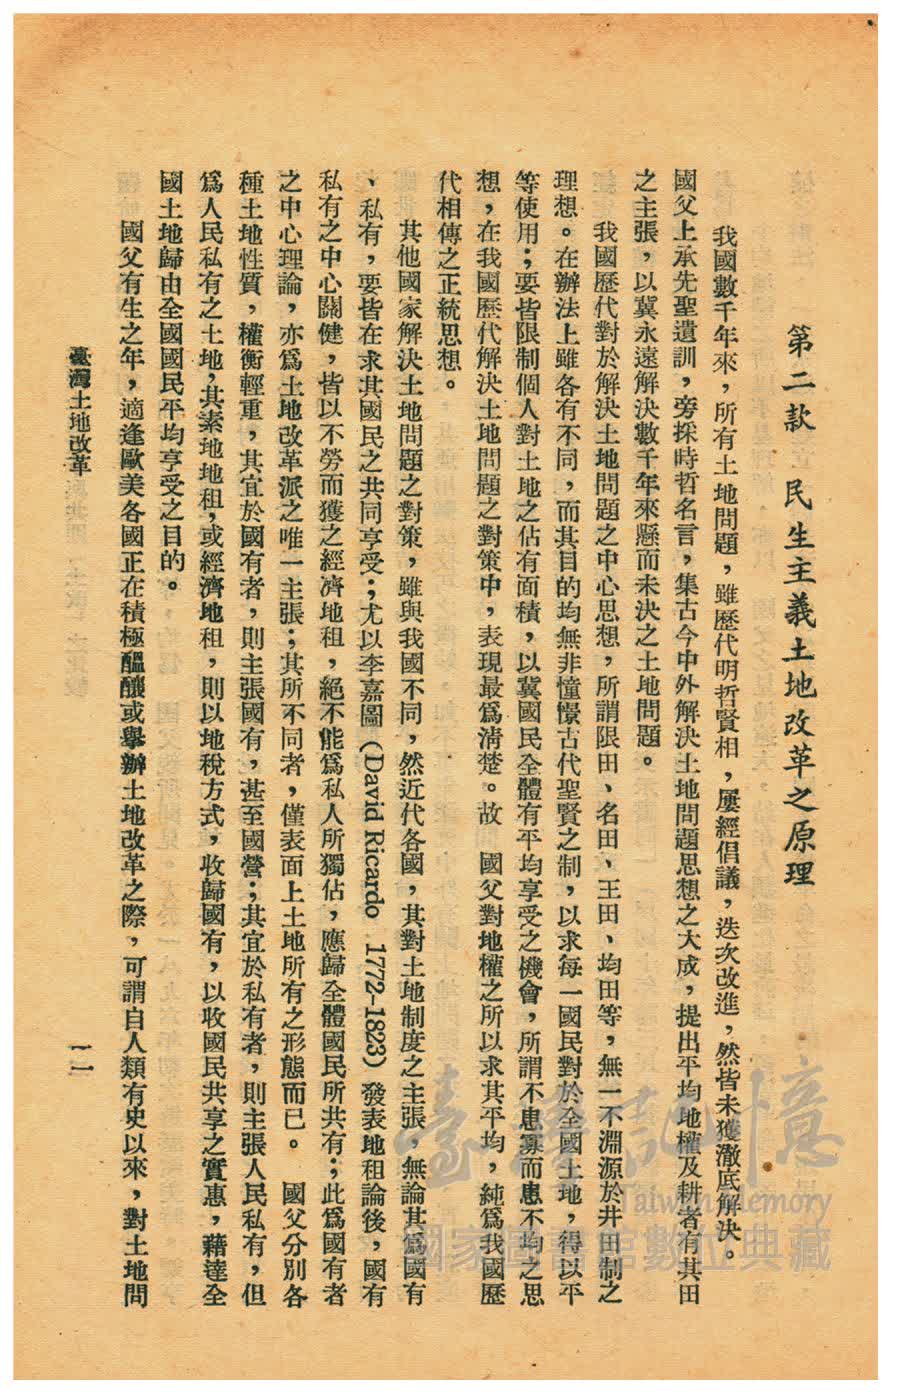 第二款　民生主義土地改革之原理
我國數千年來，所有土地問題，雖歷代明哲賢相，屢經倡議，迭次改進，然皆未獲澈底解決。
國父上承先聖遺訓，旁採時哲名言，集古今中外解決土地問題思想之大成，提出平均地權及耕者有其田
之主張，以冀永遠解決數千年來懸而未決之土地問題。
我國歷代對於解決土地問題之中心思想，所謂限田、名田、王田、均田等，無一不淵源於井田制之
理想。在辦法上雖各有不同，而其目的均無非憧憬古代聖賢之制，以求每一國民對於全國土地，得以平
等使用；要皆限制個人對土地之佔有面積，以冀國民全體有平均享受之機會，所謂不患寡而患不均之思
想，在我國歷代解決土地問題之對策中，表現最爲清楚。故　國父對地權之所以求其平均，純爲我國歷
代相傳之正統思想。
其他國家解決土地問題之對策，雖與我國不同，然近代各國，其對土地制度之主張，無論其爲國有
、私有，要皆在求其國民之共同享受；尤以李嘉圖（David Ricardo 1772–1823）發表地租論後，國有
私有之中心關健，皆以不勞而獲之經濟地租，絕不能爲私人所獨佔，應歸全體國民所共有；此爲國有者
之中心理論，亦爲土地改革派之唯一主張；其所不同者，僅表面上土地所有之形態而已。　國父分別各
種土地性質，權衡輕重，其宜於國有者，則主張國有，甚至國營；其宜於私有者，則主張人民私有，但
爲人民私有之土地，其素地地租，或經濟地租，則以地稅方式，收歸國有，以收國民共享之實惠，藉達全
國土地歸由全國國民平均享受之目的。
國父有生之年，適逢歐美各國正在積極醞釀或舉辦土地改革之際，可謂自人類有史以來，對土地問
臺灣土地改革
一一
臺灣記憶
Taiwan Memory
國家圖書館數位典藏